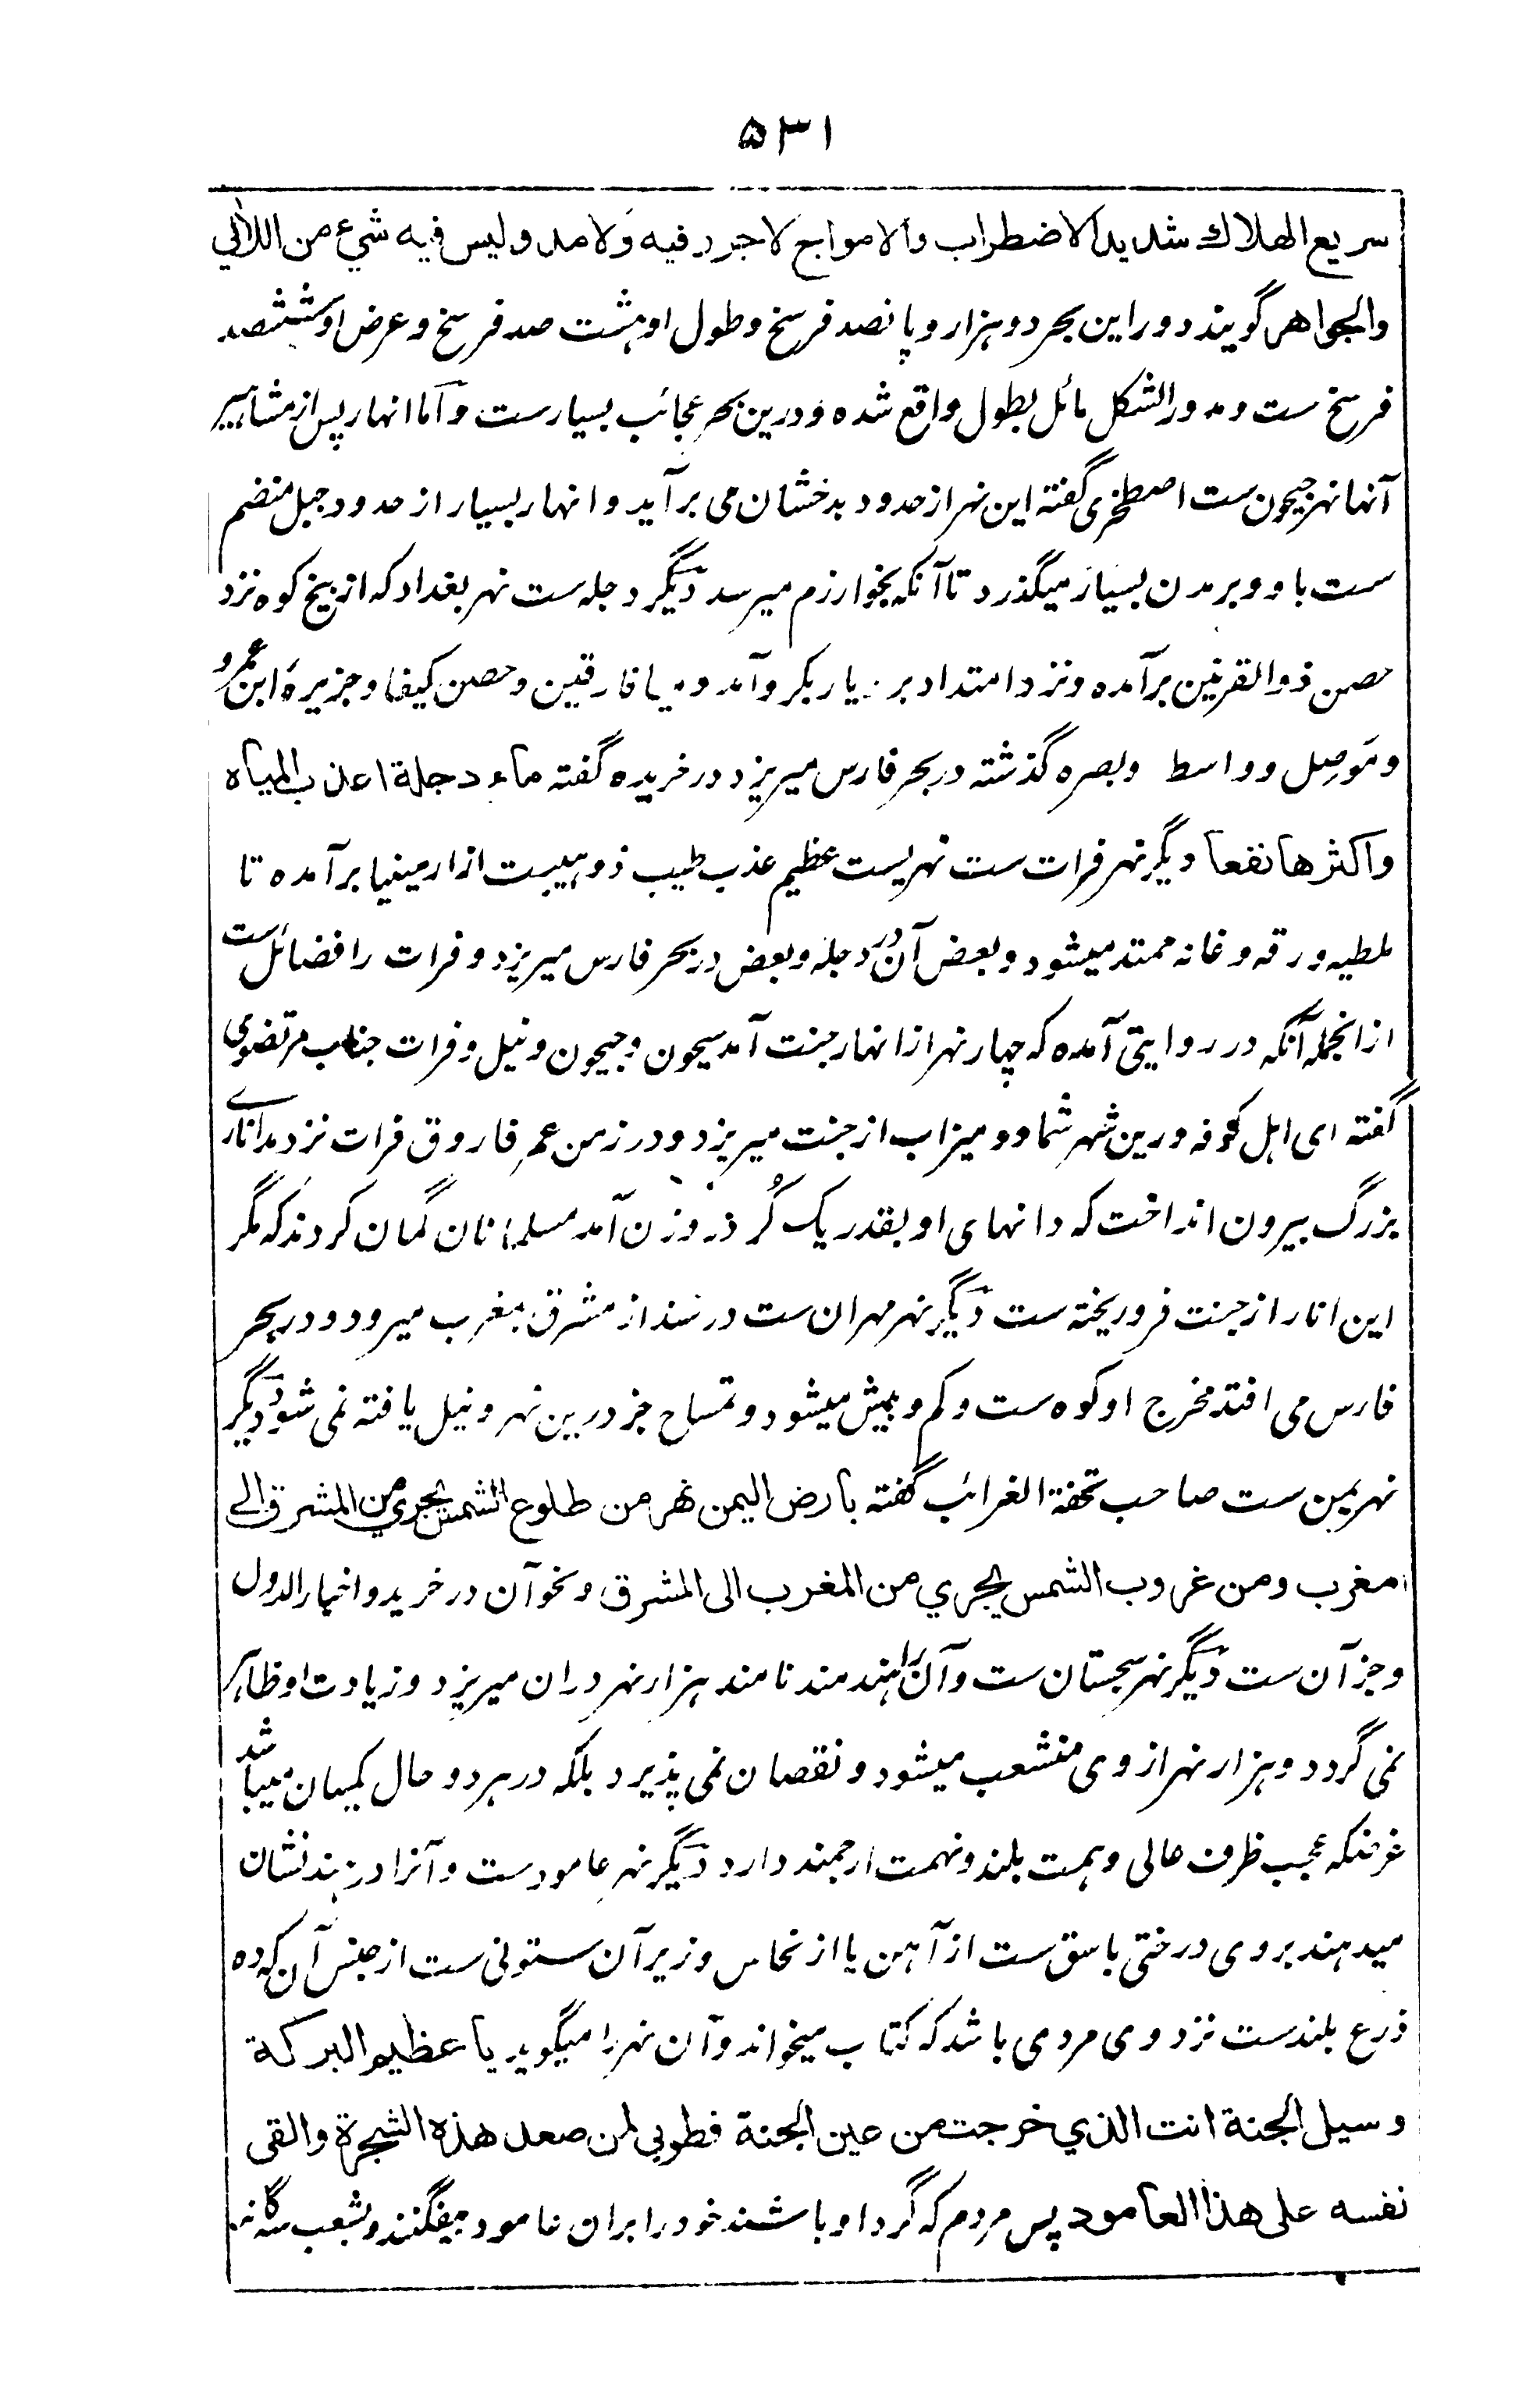 ۵۳۱
سريع الهلاك شديد الاضطراب والامواج لا جزر فيه ولا مد وليس فيه شيء من اللآلي
والجواهر گویند دور این بحر دو هزار و پانصد فرسخ و طول او هشت صد فرسخ و عرض او ششصد
فرسخ ست و مدور الشکل مائل بطول واقع شده و درین بحر عجائب بسیارست و اما انهار پس از مشاهیر
آنها نهر جیحون ست اصطخری گفته این نهر از حدود بدخشان می برآید و انهار بسیار از حدود جبل منضم
ست با و و بر مدن بسیار میگذرد تا آنکه بخوارزم میرسد دیگر دجله ست نهر بغداد که از بیخ کوه نزد
حصن ذوالقرنین برآمده و نزد امتداد بر دیار بکر و آمد و میا فارقین و حصن کیفا و جزیرۀ ابن عمرو
و موصل و واسط و بصره گذشته در بحر فارس میریزد در خریده گفته ماء دجلة اعذب المياه
واكثرها نفعا دیگر نهر فرات ست نهریست عظیم عذب طیب ذو هیبت از ارمینیا برآمده تا
ملطیه و رقه و غانه ممتد میشود و بعض آن در دجله و بعض در بحر فارس میریزد و فرات را فضائل ست
ازانجمله آنکه در روایتی آمده که چهار نهر از انهار جنت آمد سیحون و جیحون و نیل و فرات جناب مرتضوی
گفته ای اهل کوفه درین شهر شما دو میزاب از جنت میریزد و در زمن عمر فاروق فرات نزد مد اناری
بزرگ بیرون انداخت که دانهای او بقدر یک کُر در وزن آمد مسلمانان گمان کردند که مگر
این انار از جنت فرو ریخته ست دیگر نهر مهران ست در سند از مشرق بمغرب میرود و در بحر
فارس می افتد مخرج او کوه ست و کم و بیش میشود و تمساح جز درین نهر و نیل یافته نمی شود دیگر
نهر یمن ست صاحب تحفة الغرائب گفته بارض اليمن نهر من طلوع الشمس يجري من المشرق الى
المغرب ومن غروب الشمس يجري من المغرب الى المشرق و نحو آن در خریده و اخبار الدول
و جز آن ست دیگر نهر سجستان ست و آن را هندمند نامند هزار نهر دران میریزد و زیادت او ظاهر
نمی گردد و هزار نهر از وی منشعب میشود و نقصان نمی پذیرد بلکه در هر دو حال یکسان میباشد
غرضکه عجب ظرف عالی و همت بلند و نهمت ارجمند دارد دیگر نهر عامودست و آنرا در هند نشان
میدهند بر وی درختی باسق ست از آهن یا از نحاس و زیر آن ستونی ست از جنس آن که ده
ذرع بلندست نزد وی مردی باشد که کتاب میخواند و آن نهر را میگوید يا عظيم البركة
وسبيل الجنة انت الذي خرجت من عين الجنة فطوبى لمن صعد هذه الشجرة والقى
نفسه على هذا العامود پس مردم که گرد او باشند خود را بران عامود میفگنند و بشعب سگانه